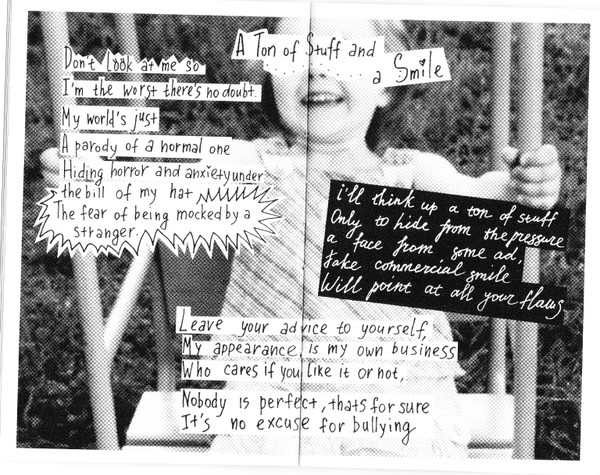 A Ton of Stuff and
a Smile
Don't look at me so
I'm the worst there's no doubt.
My world's just
A parody of a normal one
Hiding horror and anxiety under
the bill of my hat
The fear of being mocked by a
stranger.
i'll think up a ton of stuff
Only to hide from the pressure
a face from some ad,
Fake commercial smile
Will point at all your flaws
Leave your advice to yourself,
My appearance is my own business
Who cares if you like it or not,
Nobody is perfect, thats for sure
It's no excuse for bullying